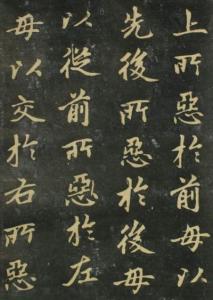 上所惡於前毋以
先後所惡於後毋
以從前所惡於左
毋以交於右所惡